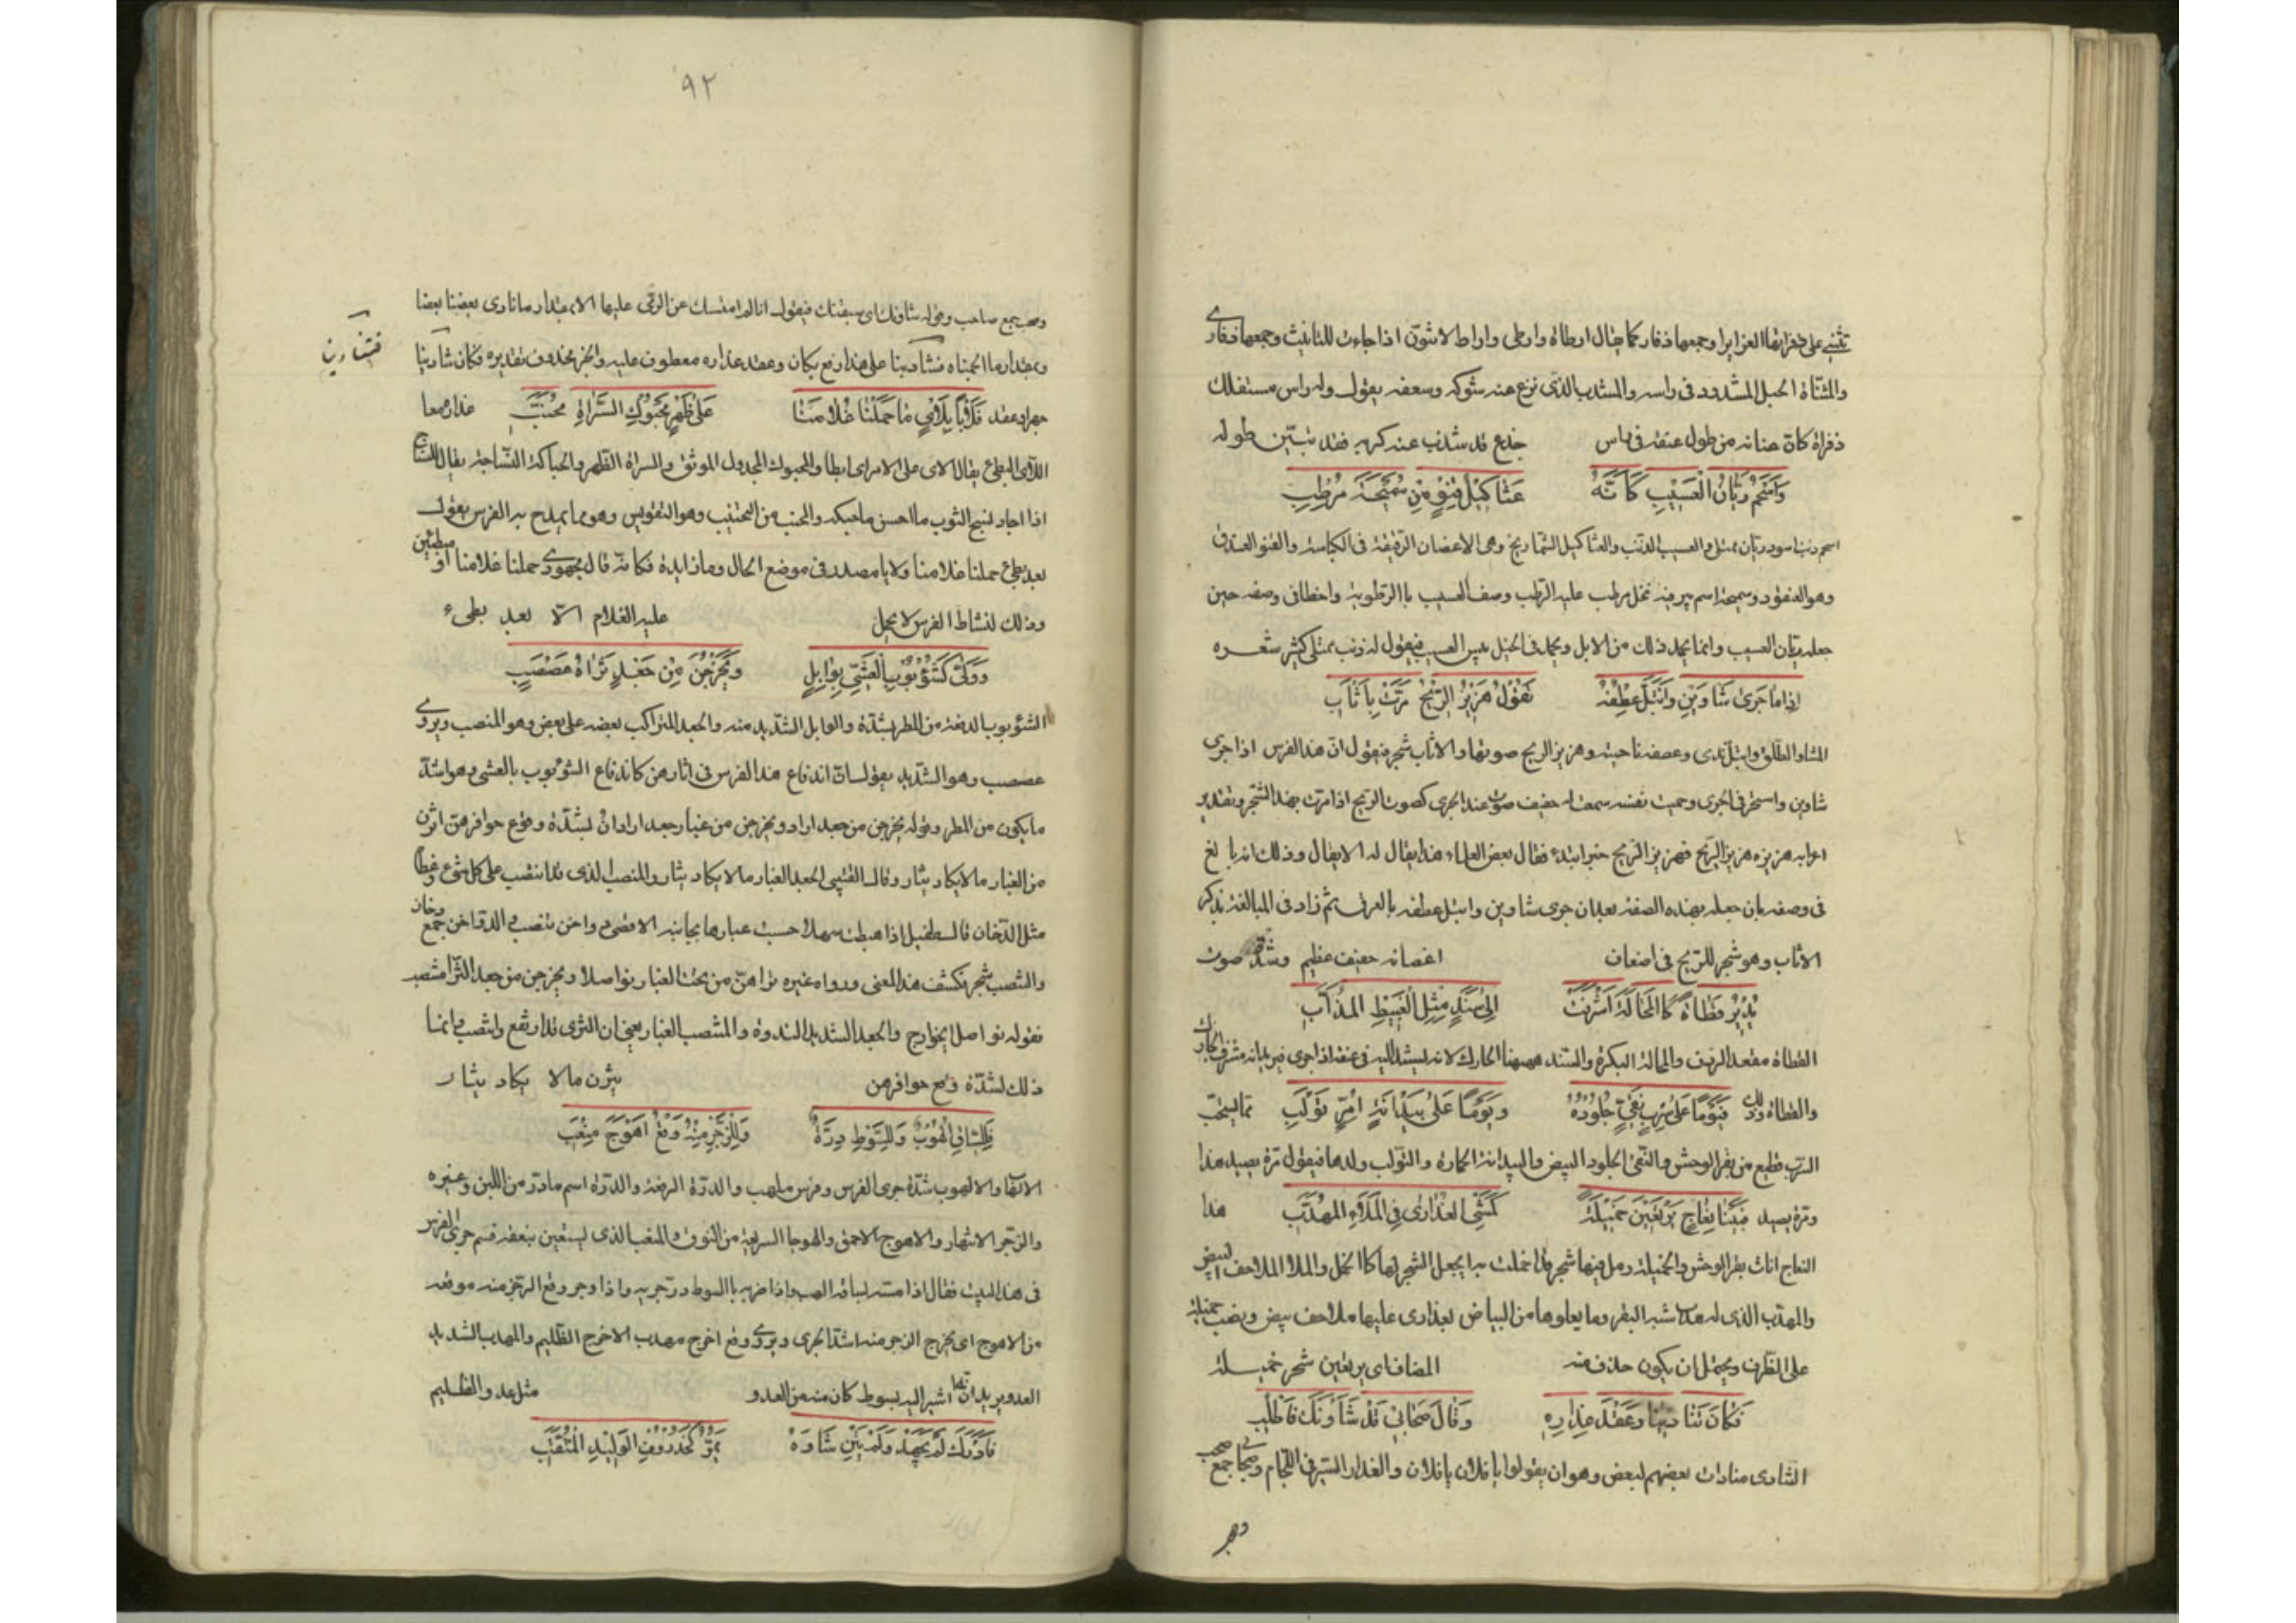 تثنى على ذفراتها الغزايرا وجمعها ذفار كما يقال ارطاة وارطى واراط لا تنون اذا جاءت للتانيث وجمعها ذفارى
والمثناة الحبل المشدود فى راسه والمشذب الذى نزع عنه شوكه وسعفه يقول وله راس مستفلك
ذفراه كان عنانه من طول عنقه فى راس جذع قد شذب عنه كربه فقد تبين طوله
وَاَسْحَمُ رَيَّانُ العَسِيْبِ كَاَنَّهُ عَثَاكِيْلُ قِنْوٍ مِنْ سُمَيْحَةَ مُرْطِبِ
اسحم ذنب اسود ريان ممتلى والعسيب الذنب والعثاكيل الشماريخ وهى الاغصان الرقيقة فى الكباسة والقنو العذق
وهو العنقود وسميحة اسم بير فيه نخل مرطب عليه الرطب وصف العسيب باالرطوبة واخطا فى وصفه حين
جعله ريان العسيب وانما يحمد ذلك من الابل ويحمد فى الخيل يبس العسيب فيقول له ذنب ممتلى كثير شعره
اِذا مَا جَرىٰ شَاوَيْنِ وَابْتَلَّ عِطْفُهُ تَقُوْلُ هَزِيْزُ الرِّيْحِ مَرَّتْ بِاَثْاَبِ
الشاو الطلق وابتل ندى وعصفه ناحيته وهزيز الريح صوتها والاثاب شجر فيقول ان هذا الفرس اذا جرى
شاوين واستمر فى الجرى وحميت نفسه سمعت له حفيف صوت عند الجرى كصوت الريح اذا مرت بهذا الشجر وتقدير
اعرابه هزيزه هزيز الريح فهزيز الريح خبر ابتدء فقال بعض العلماء هذا يقال له الايغال وذلك انه بالغ
فى وصفه بان جعله بهذه الصفة بعد ان جرى شاوين وابتل عطفه بالعرق ثم زاد فى المبالغة بذكر
الاثاب وهو شجر للريح فى اضعاف اغصانه حفيف عظيم وشدة صوت
يُدِيْرُ قَطَاةً كَاالمَحَالَةِ اَشْرَفَتْ اِلىٰ سَنَدٍ مِثْلِ الْغَبِيْطِ المُذَأَّبِ
القطاة مقعد الردف والمحالة البكرة والسند ههنا الحارك لانه يستند اليه فى عنقه اذا جرى فيريد انه مشرف الحارك
والقطاة وذلك فَيَوْمًا عَلىٰ سِرْبٍ نَقِيٍّ جُلُوْدُهُ وَيَوْمًا عَلىٰ بَيْدَانَةٍ اُمِّ تَوْلَبِ مما يستحب
السرب قطيع من بقر الوحش والنقى الجلود البيض والبيدانة الحمارة والتولب ولدها فيقول مرة يصيد هذا
ومرة يصيد فَبَيْنَا نِعَاجٍ يَرْتَعِيْنَ خَمِيْلَةً كَمَشْيِ العَذَارىٰ فِى المُلَاءِ المُهَدَّبِ هذا
النعاج اناث بقر الوحش والخميلة رمل فيها شجر قد اخملت به اى جعل الشجر لها كاالخمل والملا الملاحف البيض
والمهدب الذى له هدب شبه البقر وما يعلوها من البياض بعذارى عليها ملاحف بيض ونصب خميلة
على الظرف ويحتمل ان يكون حذف منه المضاف اى يرتعين شجر خميلة
فَكَانَ تَنَادِيْنَا وَعَقْدَ عِذارِهِ وَقَالَ صِحَابِيْ قَدْ شَاَوْنَكَ فَاطْلُبِ
التنادى منادات بعضهم لبعض وهو ان يقولوا يا فلان يا فلان والعذار السير فى اللجام وصحابى جمع صحب
وصحب
٩٢
وصحب جمع صاحب وقوله شاونك اى سبقنك فيقول انا لم امسك عن الرقى عليها الا بمقدار ما نادى بعضنا بعضا
وبمقدار ما الجمناه فتنادينا على هذا رفع بكان وعقد عذاره معطوف عليه والخبر محذوف تقديره فكان تنادينا
فتنادينا
وعقد فَلَأْيًا بِلَأْيٍ مَا حَمَلْنَا غُلَامَنَا عَلىٰ ظَهْرِ مَحْبُوْكِ السَّرَاةِ مُحَنَّبِ عذاره معا
اللأى البطئ يقال لاى على الامر اى ابطا والمحبوك المجدول الموثق والسراة الظهر والحباكة النساجة يقال للنساج
اذا اجاد نسج الثوب ما احسن ما حبكه والمحنب من التحنيب وهو التقويس وهو مما يمدح به الفرس يقول
بعد بطئ حملنا غلامنا ولايا مصدر فى موضع الحال وما زايدة فكانه قال مجهودى حملنا غلامنا او مبطئين
وذلك لنشاط الفرس لا يحمل عليه الغلام الا بعد بطىء
وَوَلّىٰ كَشُؤْبُوْبِ الْعَشِيِّ بِوَابِلٍ وَيَخْرُجْنَ مِنْ جَعْدٍ ثَرَاهُ عَصَبْصَبِ
الشؤبوب الدفعة من المطر بشدة والوابل الشديد منه والجعد المتراكب بعضه على بعض وهو المنصب ويروى
عصبصب وهو الشديد يقول ان اندفاع هذا الفرس فى اثارهن كاندفاع الشؤبوب بالعشى وهو اشد
ما يكون من المطر وقوله يخرجن من جعد اراد ويخرجن من غبار جعد اراد ان لشدة وقوع حوافرهن اثرن
من الغبار ما لا يكاد يثار وقال القتيبى الجعد الغبار ما لا يكاد يثار والمنصب الذى قد انتصب على كل شئ وغطا
مثل الدخان قال طفيل اذا هبطت سهلا حسبت غبارها بجانبه الاقصى دواخن تنضب الدواخن جمع دخان
والتنضب شجر فكشف هذا المعنى ورواه غيره تراهن من تحت الغبار نواصلا ويخرجن من جعد الثرا منتصب
فقوله نواصل اى خوارج والجعد الشديد الندوة والمنتصب الغبار يعنى ان الثرى قد ارتفع وانتصب وانما
ذلك لشدة وقع حوافرهن يثرن مالا يكاد يثار
فَلِلسَّاقِ اُلْهُوْبٌ وَلِلسَّوْطِ دِرَّةٌ وَلِلزَّجْرِ مِنْهُ وَقْعُ اَهْوَجَ مِنْعَبِ
الالتهاب والالهوب شدة جرى الفرس وفرس ملهب والدرة الرفعة والدرة اسم ما در من اللبن وغيره
والزجر الانتهار والاهوج الاحمق والهوجا السريعة من النوق والمنعب الذى يستعين بعنقه قسم جرى الفرس
فى هذا البيت فقال اذا مسه بساقه الهب واذا ضربه باالسوط در جريه واذا زجر وقع الزجر منه موقعه
من الاهوج اى يخرج الزجر منه اشد الجرى ويروى وقع اخرج مهذب الاخرج الظليم والمهذب الشديد
العدو يريد انه اذا اشير اليه بسوط كان منه من العدو مثل عدو الظليم
فَاَدْرَكَ لَمْ يَجْهَدْ وَلَمْ يَثْنِ شَاوَهُ يَمُرُّ كَخُذْرُوْفِ الوَلِيْدِ الْمُثَقَّبِ